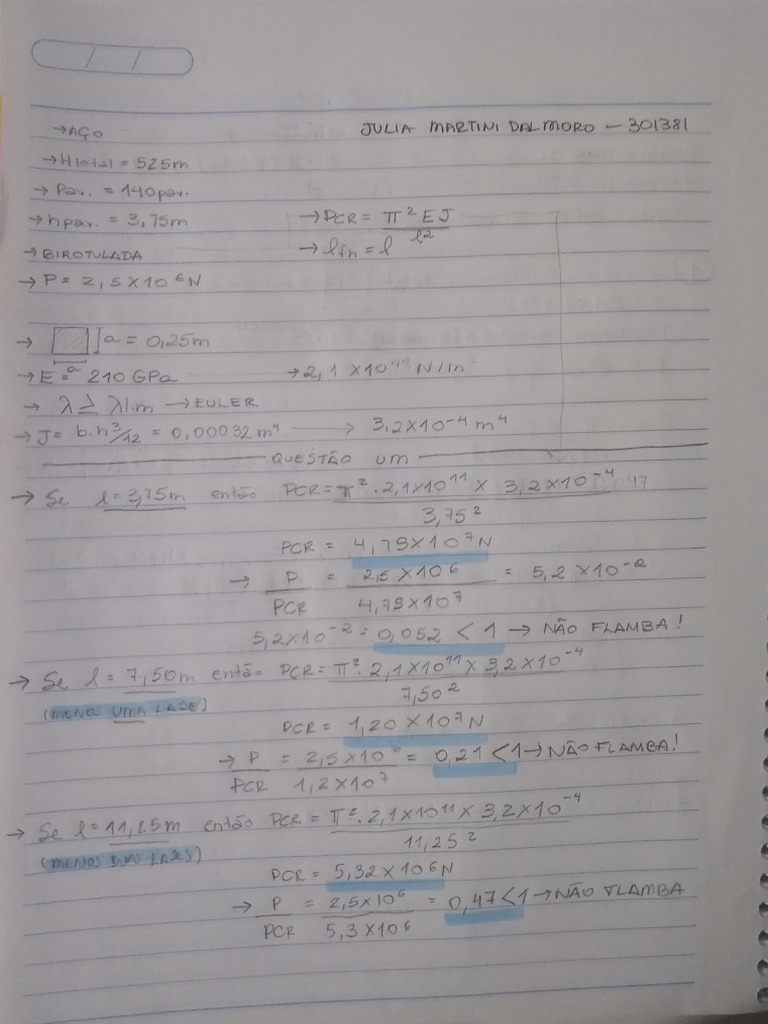 / /
→AÇO JULIA MARTINI DALMORO — 301381
→Htotal = 525m
→ Pav. = 140pav.
→ hpav. = 3,75m →PCR = π² E J / l²
→ BIROTULADA → lfn = l
→ P = 2,5 × 10⁶ N
→ a = 0,25m
a
→ E = 210 GPa → 2,1 × 10¹¹ N/m²
→ λ ≥ λlim → EULER
→ J = b.h³/12 = 0,00032 m⁴ → 3,2×10⁻⁴ m⁴
QUESTÃO UM
→ Se l = 3,75m então PCR = π² . 2,1×10¹¹ × 3,2×10⁻⁴
3,75²
PCR = 4,79×10⁷ N
→ P = 2,5 ×10⁶ = 5,2 ×10⁻²
PCR 4,79×10⁷
5,2×10⁻² = 0,052 < 1 → NÃO FLAMBA!
→ Se l = 7,50m então PCR = π² . 2,1×10¹¹ × 3,2×10⁻⁴
(MENOS UMA LAJE) 7,50²
PCR = 1,20 ×10⁷ N
→ P = 2,5 ×10⁶ = 0,21 < 1 → NÃO FLAMBA!
PCR 1,2×10⁷
→ Se l = 11,25m então PCR = π² . 2,1×10¹¹ × 3,2×10⁻⁴
(MENOS DUAS LAJES) 11,25²
PCR = 5,32 ×10⁶ N
→ P = 2,5×10⁶ = 0,47 < 1 → NÃO FLAMBA
PCR 5,3 ×10⁶